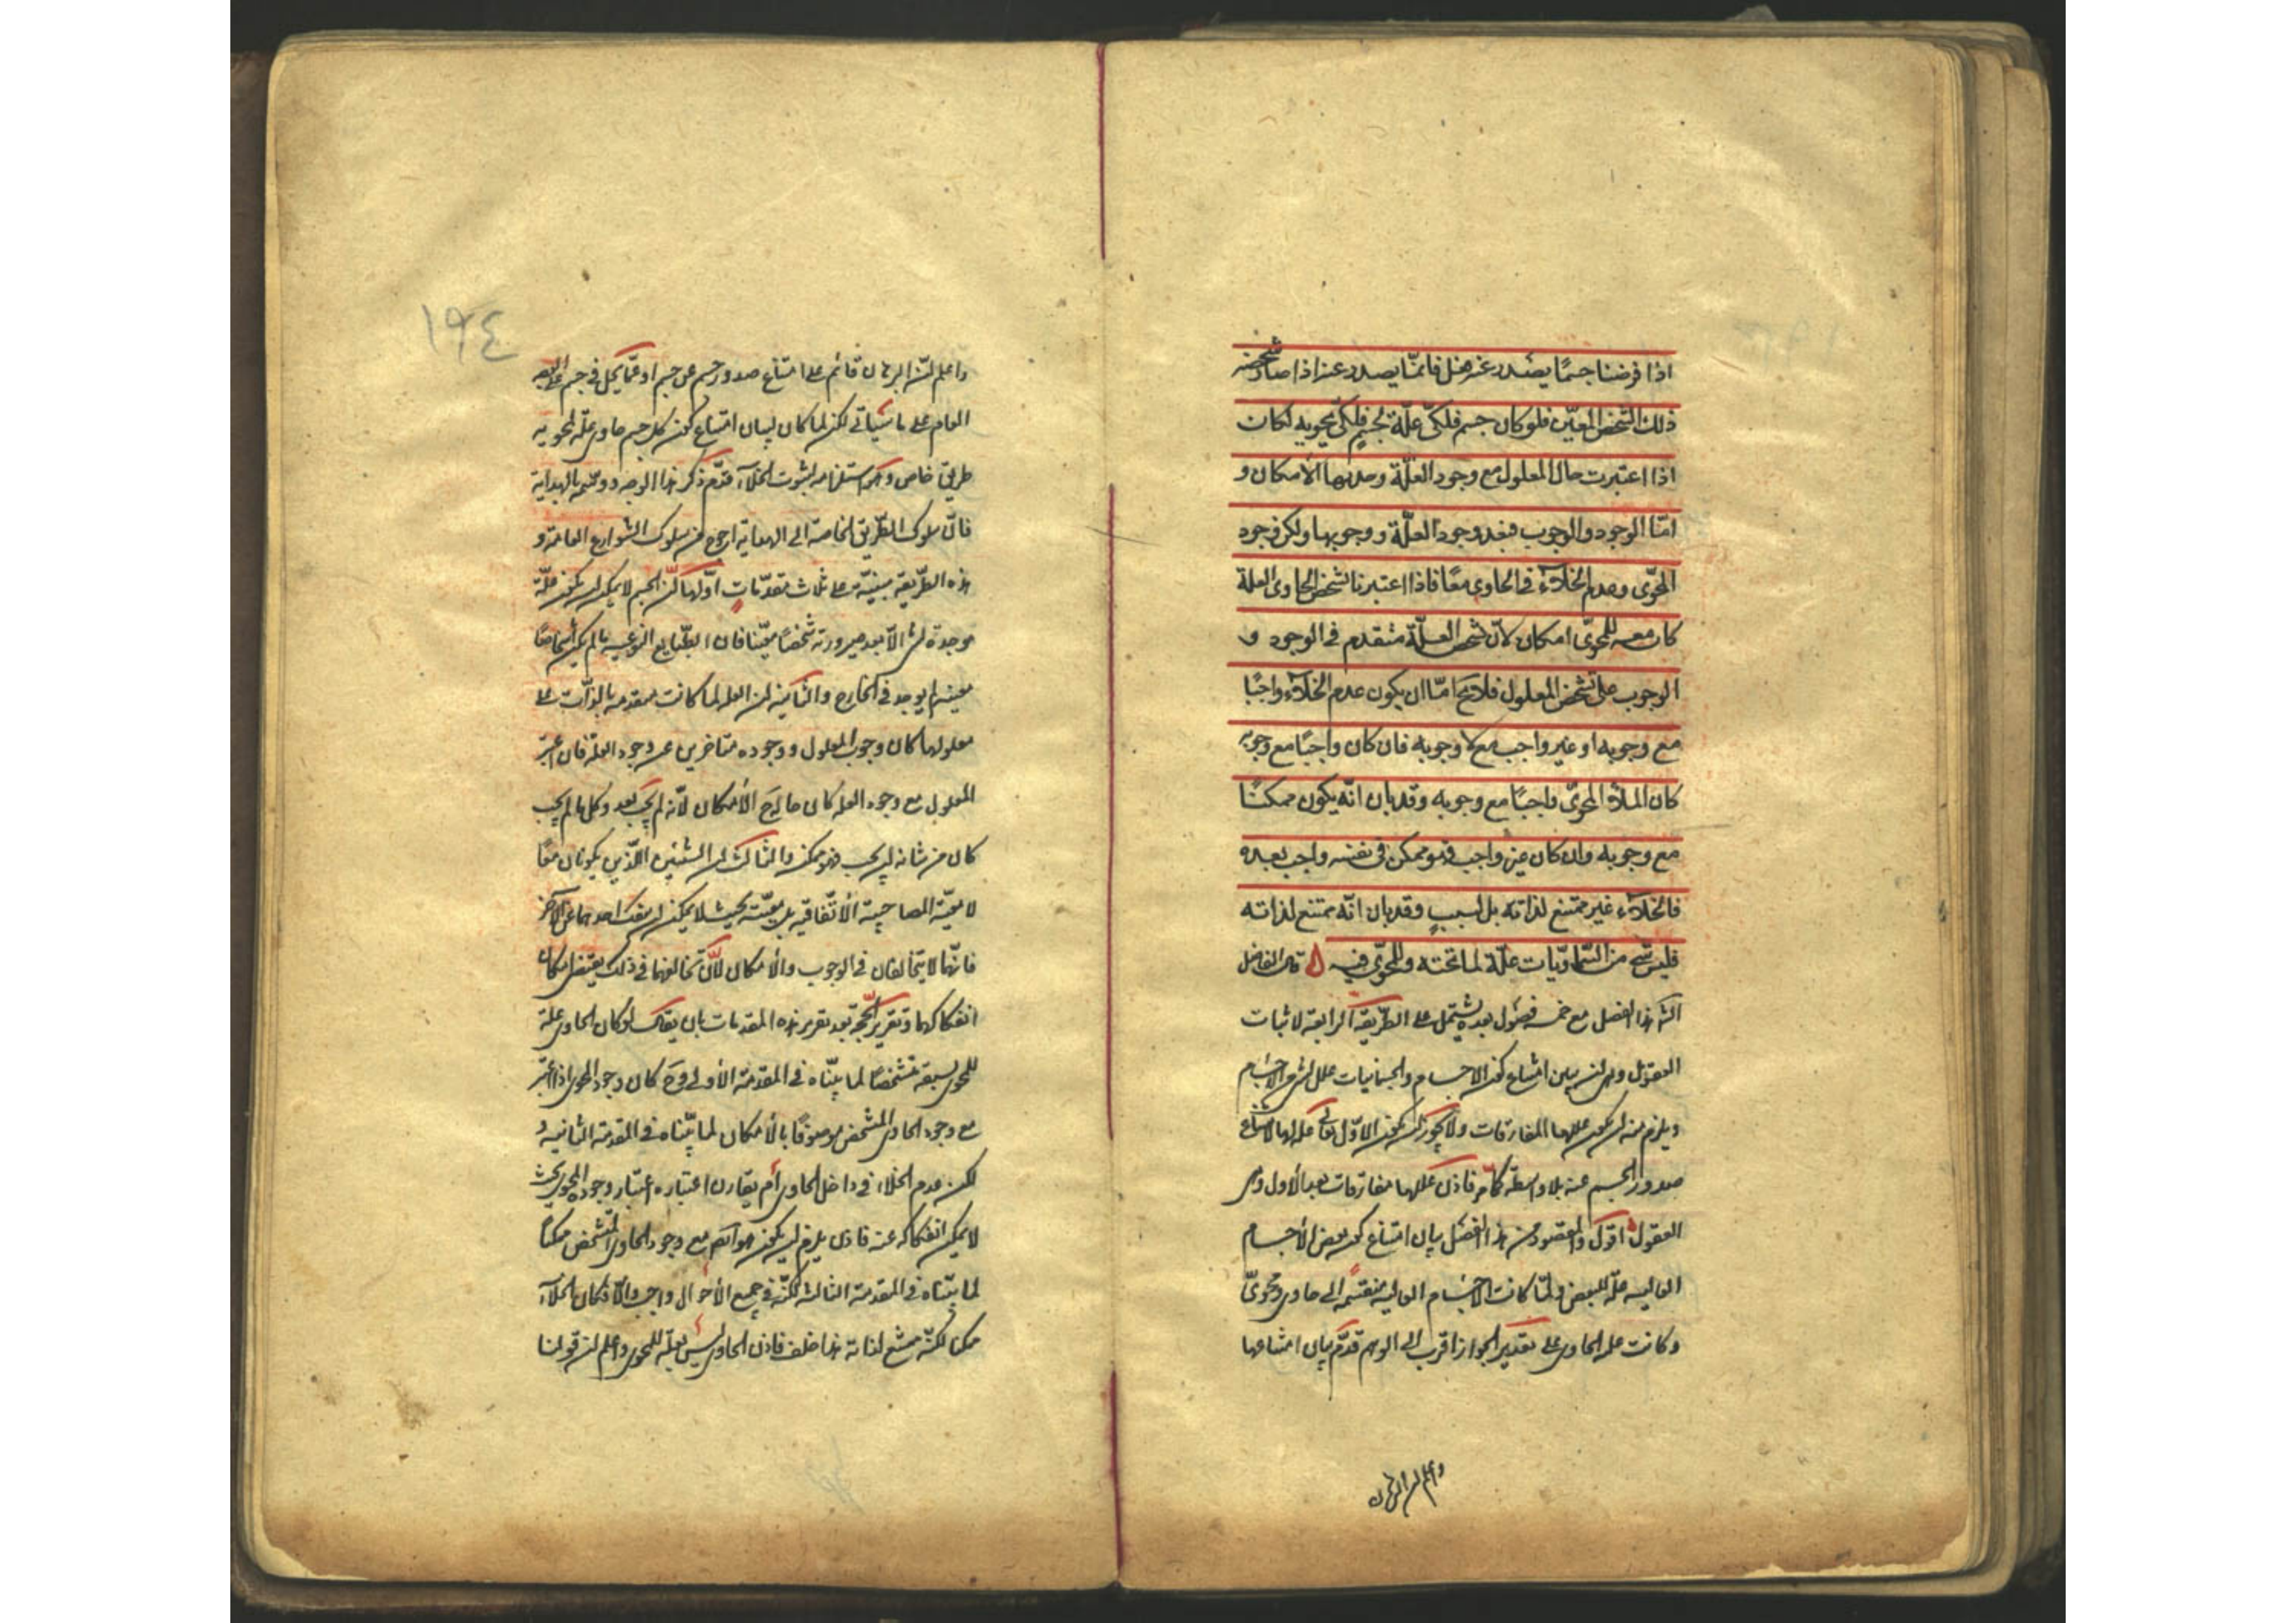 اذا فرضنا جسمًا يصدر عنه فعل فانّما يصدر عنه اذا صار شخصه
ذلك الشخص المعيّن فلو كان جسم فلكىّ علّة لجسم فلكىّ يحويه لكانت
اذا اعتبرت حال المعلول مع وجود العلّة وجدتها الامكان و
امّا الوجود والوجوب فبعد وجود العلّة ووجوبها ولكن وجود
المحوّى وعدم الخلآء فى الحاوى معًا فاذا اعتبرنا تشخص الحاوى العلة
كان معه للمحوىّ امكان لانّ تشخص العلّة متقدم فى الوجود و
الوجوب على تشخص المعلول فلا يخ امّا ان يكون عدم الخلآء واجبًا
مع وجوبه او غير واجب مع وجوبه فان كان واجبًا مع وجوبه
كان الملآء المحوىّ واجبًا مع وجوبه وقد بان انّه يكون ممكنًا
مع وجوبه وان كان غير واجب فهو ممكن فى نفسه واجب بعده
فالخلآء غير ممتنع لذاته بل لسبب وقد بان انّه ممتنع لذاته
فليس شئ من السّماويّات علّة لما تحته وللمحوىّ فيه ۵ قال الفاضل
الشه هذا الفصل مع خمسه فصول بعده يشتمل على الطّريقة الرابعة لاثبات
العقول وهى ان يبين امتناع كون الاجسام والجسمانيات علل لشئ من الاجسام
ويلزم منه ان يكون عللها المفارقات ولا يجوز ان يكون الاوّل تعالى علة لها لامتناع
صدور الجسم عنه بلا واسطة كما مرّ فاذن عللها مفارقات بعد الأول وهى
العقول اقول والمقصود من هذا الفصل بيان امتناع كون بعض الأجسام
العاليه علّة للبعض ولمّا كانت الاجسام العالية منقسمة الى حاوى ومحوىّ
وكانت علة الحاوى على تقدير الجواز اقرب الى الوهم قدّم بيان امتناعها
واعلم ان البرهان
١٩٤
واعلم انّ البرهان قائم على امتناع صدور جسم عن جسم او عمّا يحلّ فى جسم على الوجه
العام على ما سيأتى لكن لما كان لبيان امتناع كون كل جسم حاوى علّة لمحويه
طريق خاص وهو استلزامه لثبوت الخلآء قدّم ذكر هذا الوجه ووسمه بالهداية
فانّ سلوك الطّريق الخاصة الى الهداية ارجح من سلوك الشوارع العامة و
هذه الطّريقة مبنيّة على ثلاث مقدّمات اوّلها انّ الجسم لا يمكن ان يكون علّة
موجدة لشئ الّا بعد صيرورته شخصًا معيّنا فان الطّبايع النوعيه ما لم يكن أشخاصًا
معينة لم يوجد فى الخارج والثانية ان العلة لما كانت متقدمة بالذّات على
معلولها كان وجوب المعلول ووجوده متاخرين عن وجود العلّة فان اعتبر
المعلول مع وجود العلة كان حاله ح الأمكان لأنّه لم يجب بعد وكل ما لم يجب
كان من شانه ان يجب فهو ممكن والثالث ان الشيئين اللّذين يكونان معًا
لا معيّة المصاحبة الاتّفاقيه بل معيّة بحيث لا يمكن ان ينفك احدهما عن الآخر
فانّهما لا يتخالفان فى الوجوب والأمكان لأنّ تخالفهما فى ذلك يقتضى امكان
انفكاكهما وتقرير الحجّة بعد تقرير هذه المقدمات بان يقال لو كان الحاوى علة
للمحوى لسبقه متشخصًا لما بيّناه فى المقدمة الأولى وح كان وجود المحوى اذا اعتبر
مع وجود الحاوى المتشخص موصوفًا بالأمكان لما بيّناه فى المقدمة الثانيه و
لكن عدم الخلاء فى داخل الحاوى امر يقارن اعتباره اعتبار وجود المحوى بحيث
لا يمكن انفكاكه عنه فاذن يلزم ان يكون هو ايضًا مع وجود الحاوى المتشخص ممكنًا
لما بيّناه فى المقدمة الثالثة لكنّه فى جميع الأحوال واجب والّا فكان الخلآء
ممكنا لكنّه ممتنع لذاته هذا خلف فاذن الحاوى ليس بعلّة للمحوى واعلم ان قولنا